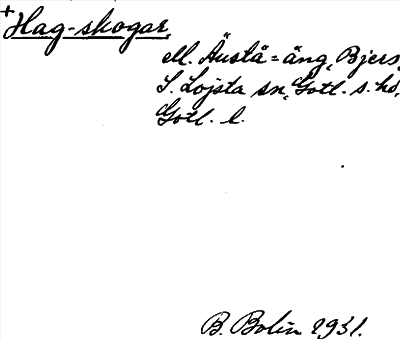 +Hag-skogar,
M. Äustå=äng, Bjers,
S. Lojsta sn, Gotl. s. hd,
Gotl. l.
B. Bolin 1931.